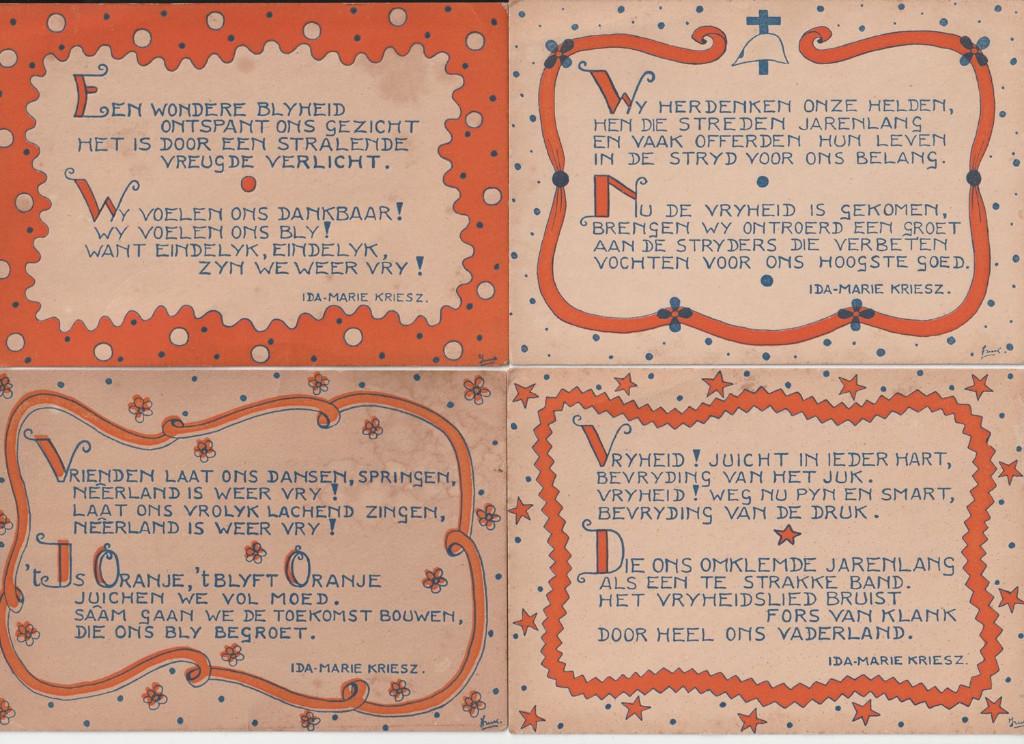 EEN WONDERE BLYHEID
ONTSPANT ONS GEZICHT
HET IS DOOR EEN STRALENDE
VREUGDE VERLICHT.
WY VOELEN ONS DANKBAAR!
WY VOELEN ONS BLY!
WANT EINDELYK, EINDELYK,
ZYN WE WEER VRY!
IDA-MARIE KRIESZ.
WY HERDENKEN ONZE HELDEN,
HEN DIE STREDEN JARENLANG
EN VAAK OFFERDEN HUN LEVEN
IN DE STRYD VOOR ONS BELANG.
NU DE VRYHEID IS GEKOMEN,
BRENGEN WY ONTROERD EEN GROET
AAN DE STRYDERS DIE VERBETEN
VOCHTEN VOOR ONS HOOGSTE GOED.
IDA-MARIE KRIESZ.
VRIENDEN LAAT ONS DANSEN, SPRINGEN,
NEÊRLAND IS WEER VRY!
LAAT ONS VROLYK LACHEND ZINGEN,
NEÊRLAND IS WEER VRY!
'T IS ORANJE, 'T BLYFT ORANJE
JUICHEN WE VOL MOED.
SAÂM GAAN WE DE TOEKOMST BOUWEN,
DIE ONS BLY BEGROET.
IDA-MARIE KRIESZ.
VRYHEID! JUICHT IN IEDER HART,
BEVRYDING VAN HET JUK.
VRYHEID! WEG NU PYN EN SMART,
BEVRYDING VAN DE DRUK.
DIE ONS OMKLEMDE JARENLANG
ALS EEN TE STRAKKE BAND.
HET VRYHEIDSLIED BRUIST
FORS VAN KLANK
DOOR HEEL ONS VADERLAND.
IDA-MARIE KRIESZ.